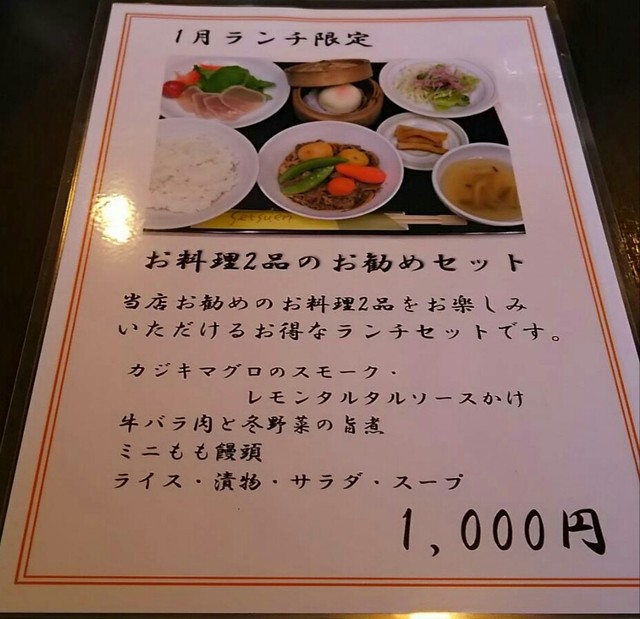 1月ランチ限定
お料理2品のお勧めセット
当店お勧めのお料理2品をお楽しみ
いただけるお得なランチセットです。
カジキマグロのスモーク・
レモンタルタルソースかけ
牛バラ肉と冬野菜の旨煮
ミニもも饅頭
ライス・漬物・サラダ・スープ
1,000円